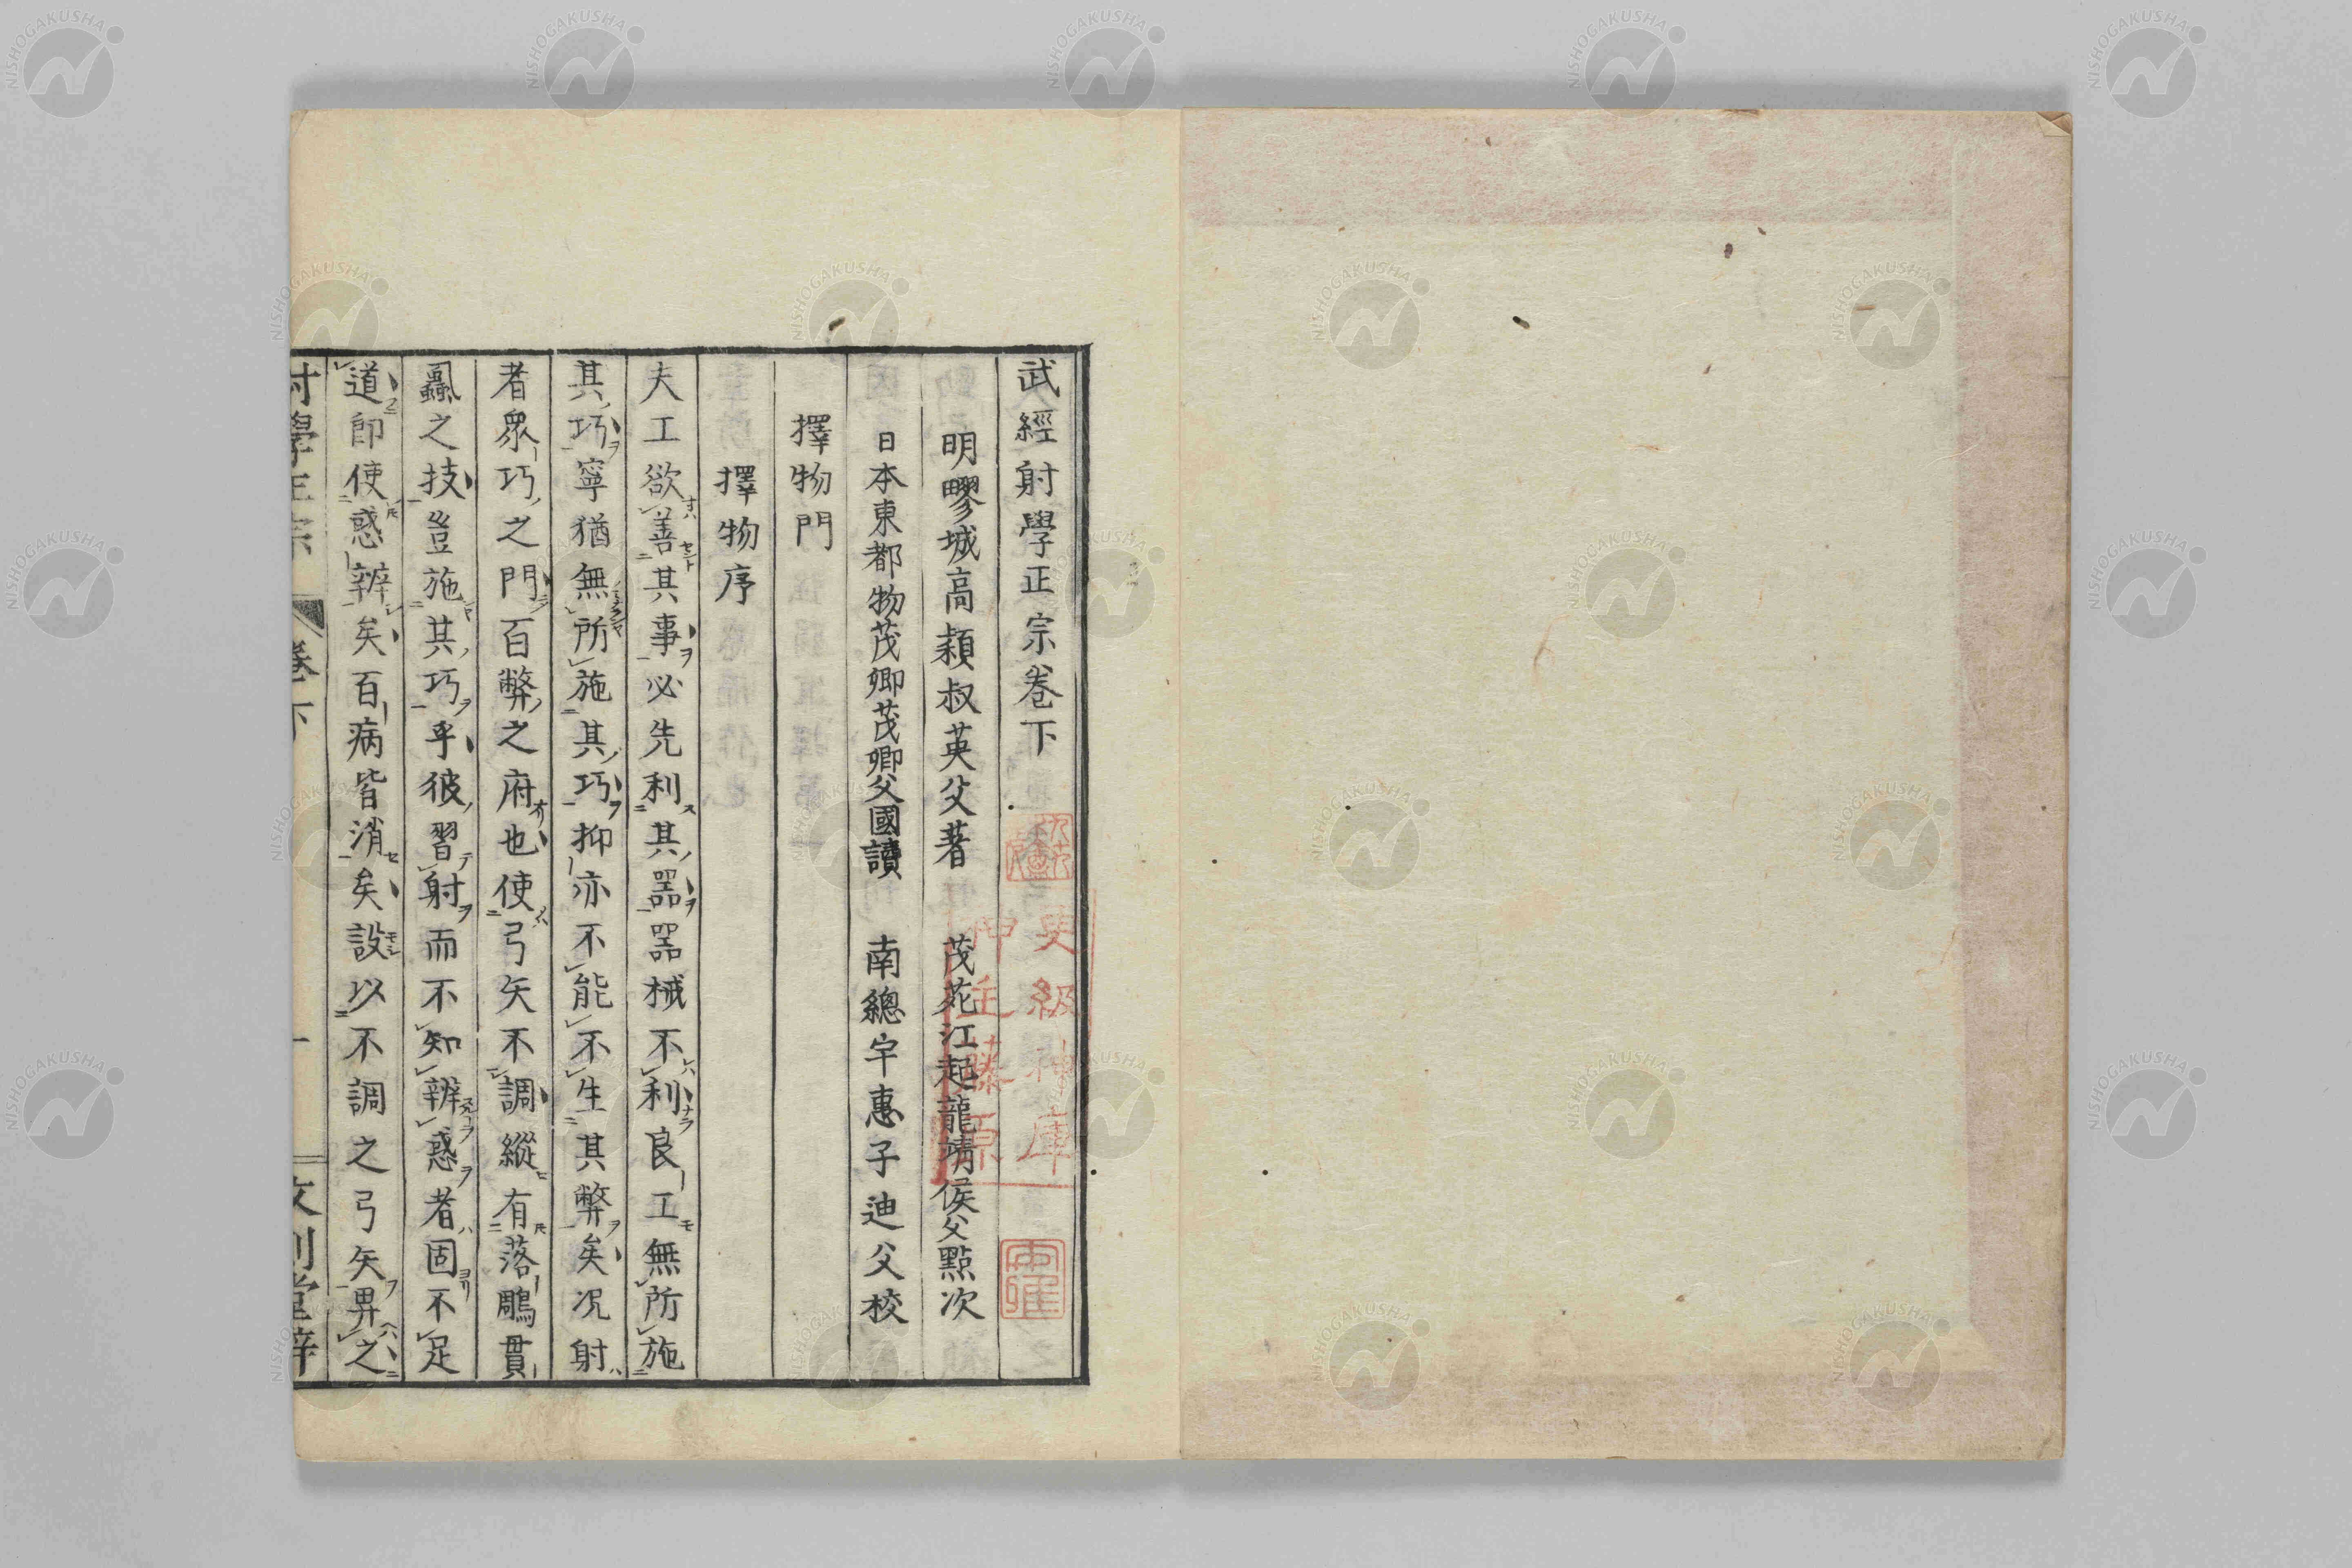 武經射學正宗卷下
明瞜城高穎叔英父著　茂苑江起龍靖侯父點次
日本東都物茂卿茂卿父國讀　南總宇惠子迪父校
擇物門
擇物序
夫工欲善其事必先利其噐噐械不利良工無所施
其巧寧猶無所施其巧抑亦不能不生其弊矣况射
者衆巧之門百弊之府也使弓矢不調縱有落鵰貫
蝨之技豈施其巧乎彼習射而不知辨惑者固不足
道即使惑辨矣百病皆消矣設以不調之弓矢畀之
射學正宗　卷下　一